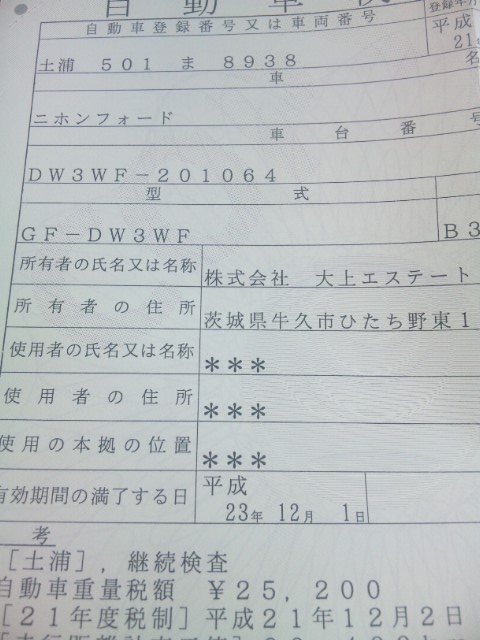 自動車検
自動車登録番号又は車両番号
登録年月
土浦 501 ま 8938
平成
21年
車名
ニホンフォード
車台番号
DW3WF-201064
型式
GF-DW3WF
B3
所有者の氏名又は名称
株式会社 大上エステート
所有者の住所
茨城県牛久市ひたち野東1
使用者の氏名又は名称
***
使用者の住所
***
使用の本拠の位置
***
有効期間の満了する日
平成
23年 12月 1日
考
[土浦],継続検査
自動車重量税額 ¥25,200
[21年度税制]平成21年12月2日